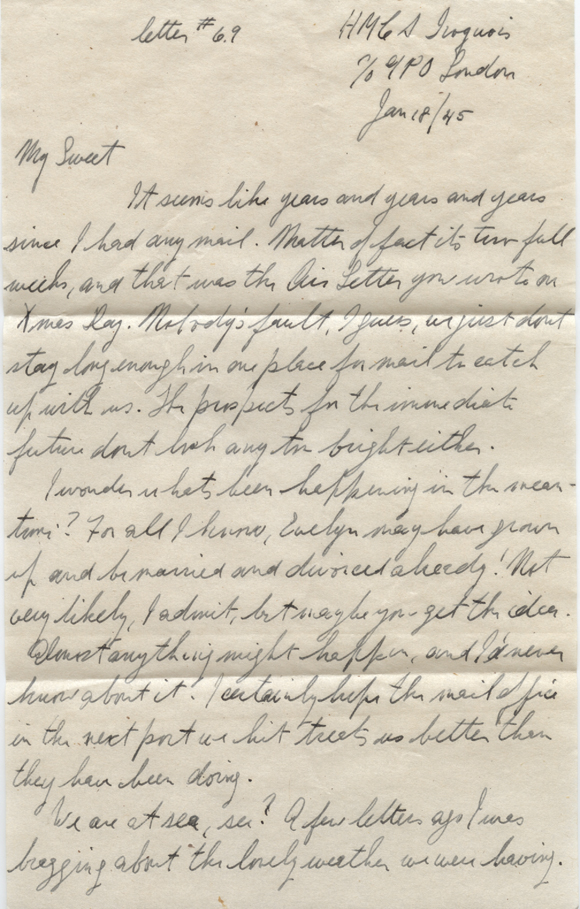 letter # 69
HMCS Iroquois
c/o GPO London
Jan 18/45
My Sweet
It seems like years and years and years
since I had any mail. Matter of fact its two full
weeks, and that was the Air Letter you wrote on
Xmas Day. Nobody's fault, I guess, we just dont
stay long enough in one place for mail to catch
up with us. The prospects for the immediate
future dont look any too bright either.
I wonder whats been happening in the mean-
time? For all I know, Evelyn may have grown
up and be married and divorced already! Not
very likely, I admit, but maybe you get the idea.
Almost anything might happen, and I'd never
know about it. I certainly hope the mail office
in the next port we hit treats us better than
they have been doing.
We are at sea, see? A few letters ago I was
bragging about the lovely weather we were having.